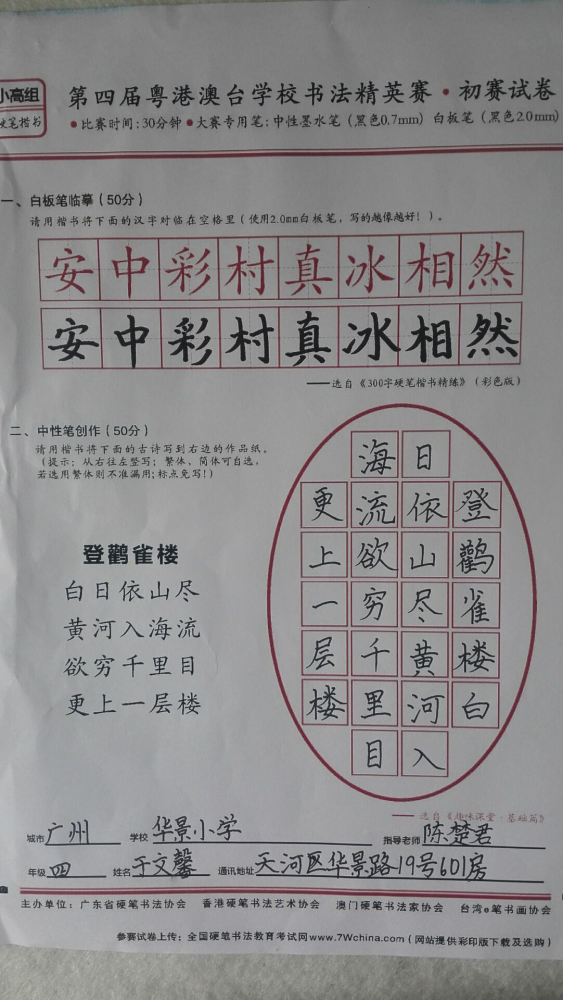 小高组
硬笔楷书
第四届粤港澳台学校书法精英赛·初赛试卷
●比赛时间:30分钟●大赛专用笔:中性墨水笔（黑色0.7mm）白板笔（黑色2.0mm）
一、白板笔临摹（50分）
请用楷书将下面的汉字对临在空格里（使用2.0mm白板笔，写的越像越好！）。
安中彩村真冰相然
安中彩村真冰相然
——选自《300字硬笔楷书精练》（彩色版）
二、中性笔创作（50分）
请用楷书将下面的古诗写到右边的作品纸。
（提示：从右往左竖写；繁体、简体可自选，
若选用繁体则不准漏用;标点免写!）
登鹳雀楼
白日依山尽
黄河入海流
欲穷千里目
更上一层楼
登鹳雀楼白
日依山尽黄河入
海流欲穷千里目
更上一层楼
——选自《趣味课堂·基础篇》
城市 广州 学校 华景小学 指导老师 陈楚君
年级 四 姓名 于文馨 通讯地址 天河区华景路19号601房
主办单位：广东省硬笔书法协会 香港硬笔书法艺术协会 澳门硬笔书法家协会 台湾e笔书画协会
参赛试卷上传：全国硬笔书法教育考试网www.7Wchina.com（网站提供彩印版下载及选购）